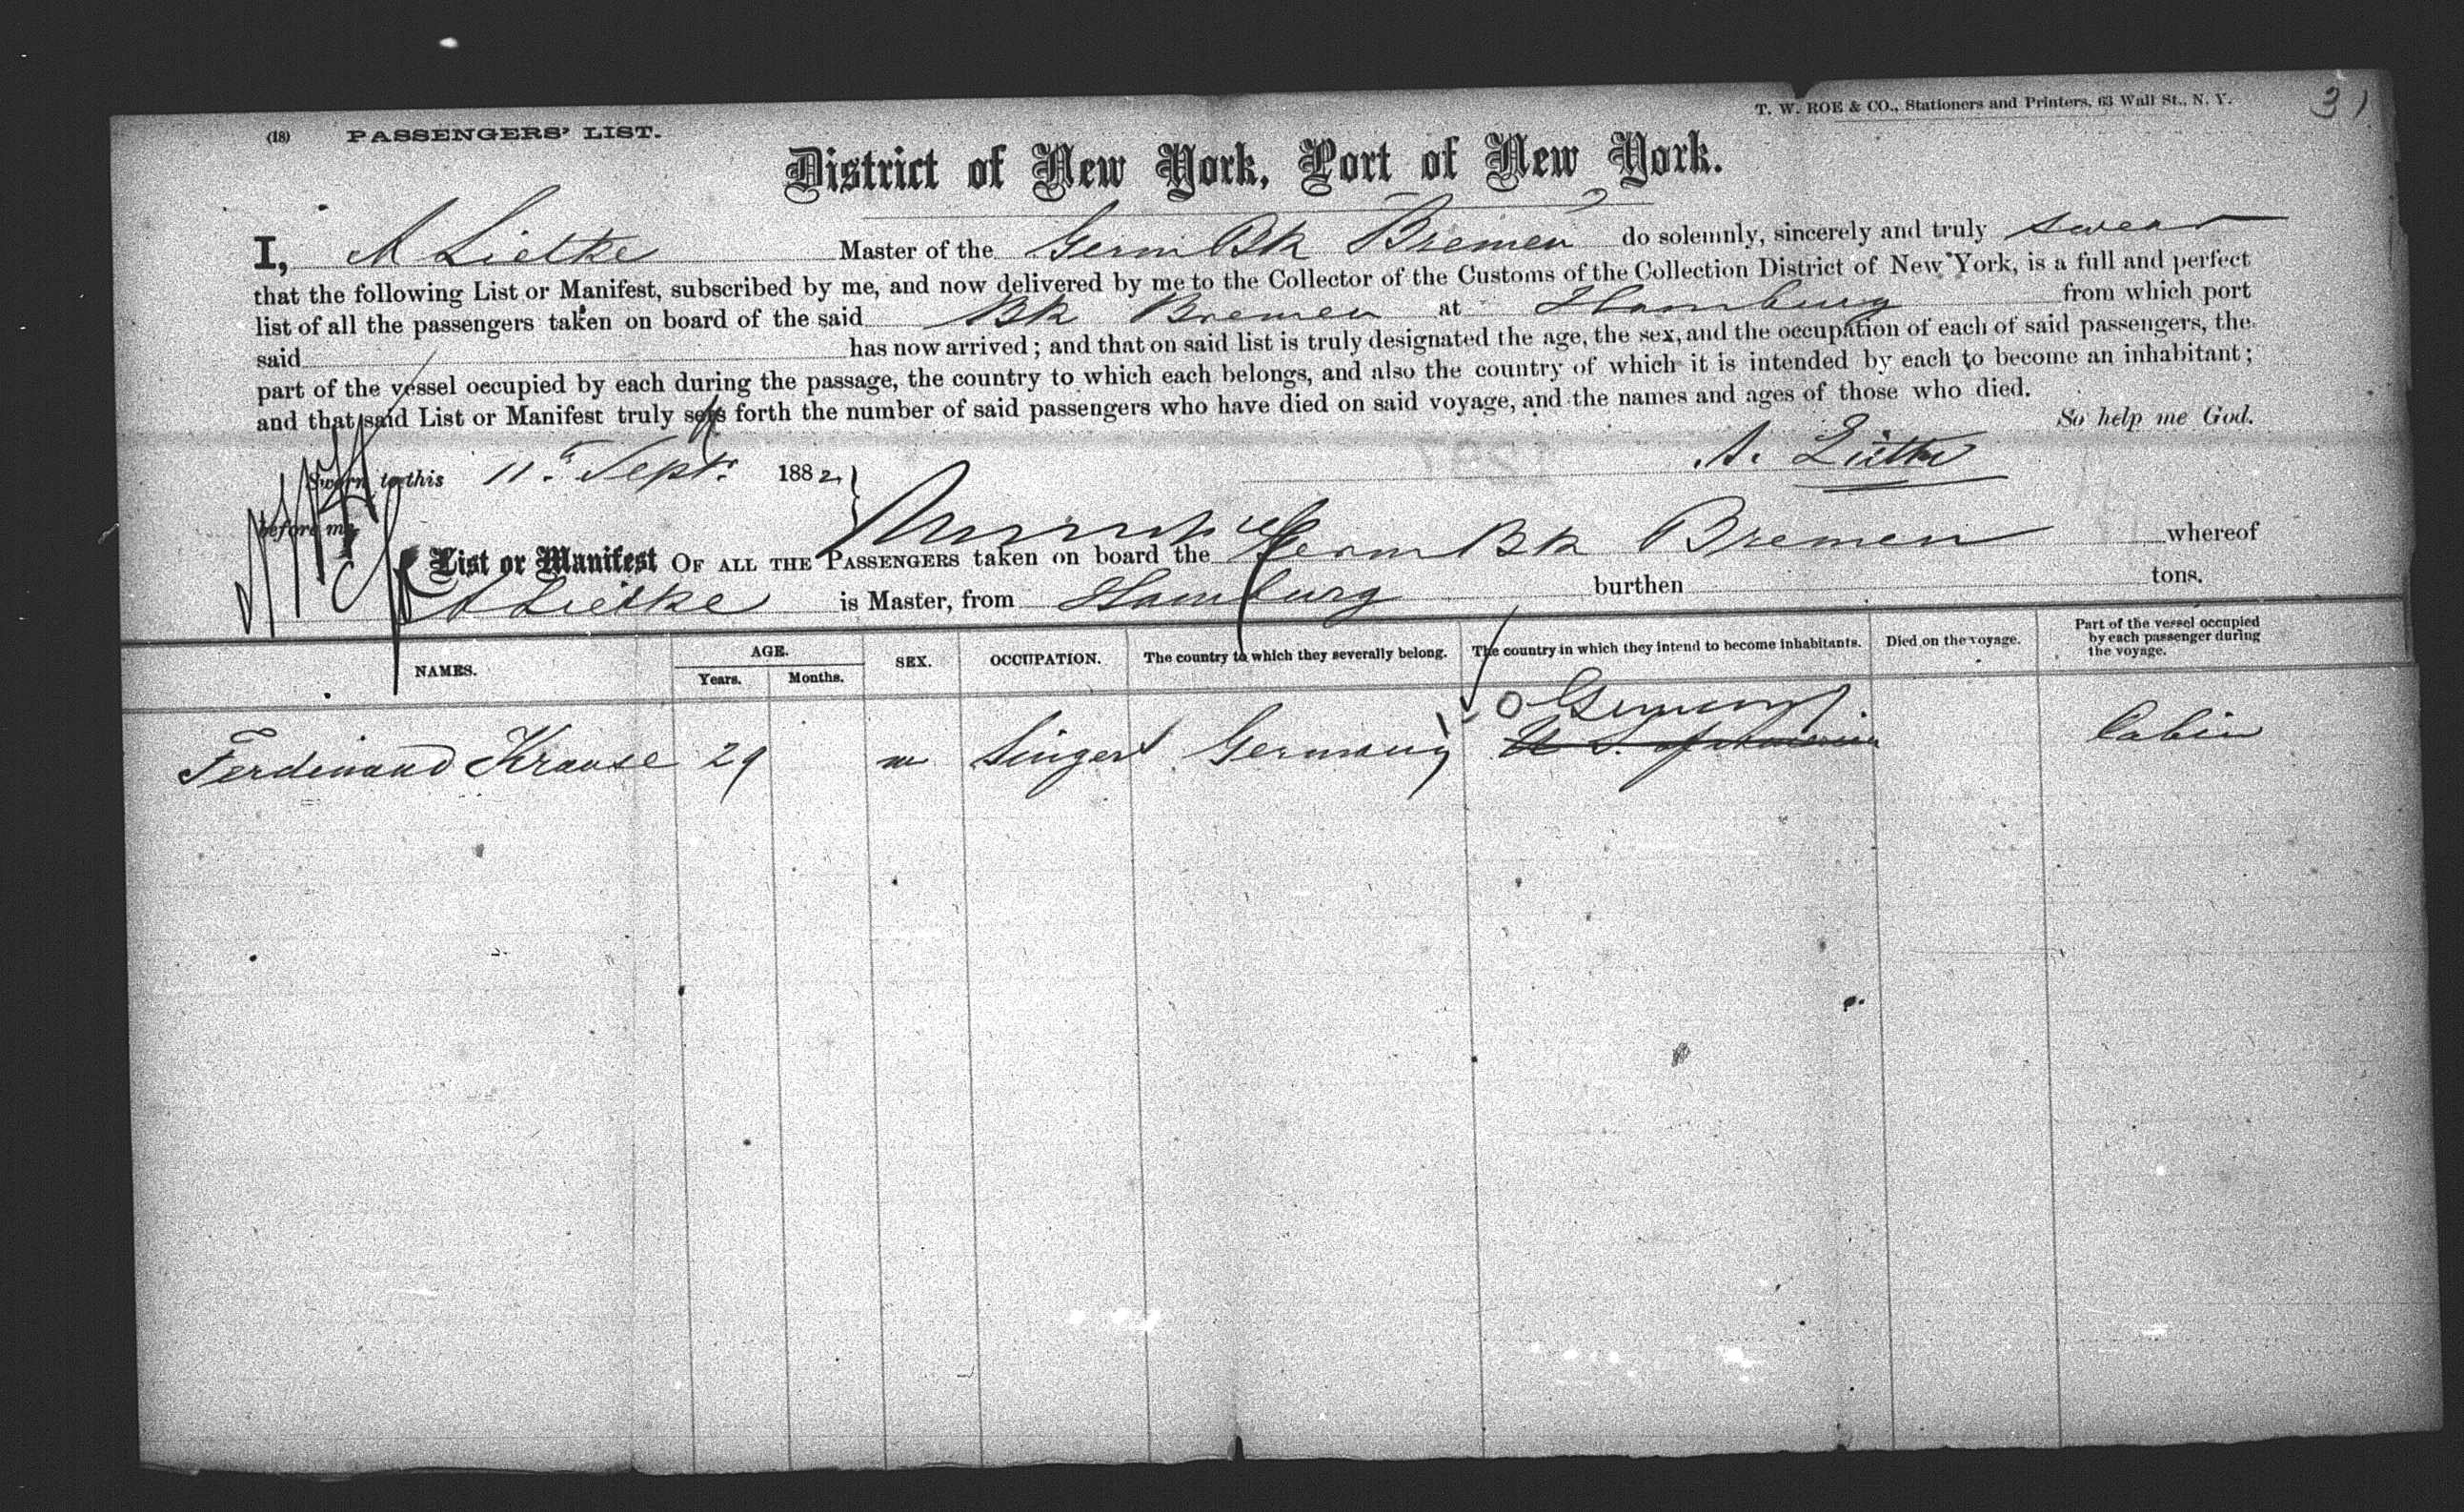 (18) PASSENGERS' LIST.
T. W. ROE & CO., Stationers and Printers, 63 Wall St., N. Y.
31
District of New York, Port of New York.
I, A Lietke Master of the Germ Bk Bremen do solemnly, sincerely and truly swear
that the following List or Manifest, subscribed by me, and now delivered by me to the Collector of the Customs of the Collection District of New York, is a full and perfect
list of all the passengers taken on board of the said Bk Bremen at Hamburg from which port
said has now arrived; and that on said list is truly designated the age, the sex, and the occupation of each of said passengers, the
part of the vessel occupied by each during the passage, the country to which each belongs, and also the country of which it is intended by each to become an inhabitant;
and that said List or Manifest truly sets forth the number of said passengers who have died on said voyage, and the names and ages of those who died.
So help me God.
Sworn to this 11 Sept. 1882
before me,
List or Manifest OF ALL THE PASSENGERS taken on board the Germ Bk Bremen whereof
A Lietke is Master, from Hamburg burthen tons.
NAMES. AGE. Years. Months. SEX. OCCUPATION. The country to which they severally belong. The country in which they intend to become inhabitants. Died on the voyage. Part of the vessel occupied by each passenger during the voyage.
Germany
Ferdinand Krause 29 m Singer Germany U. S. of America Cabin